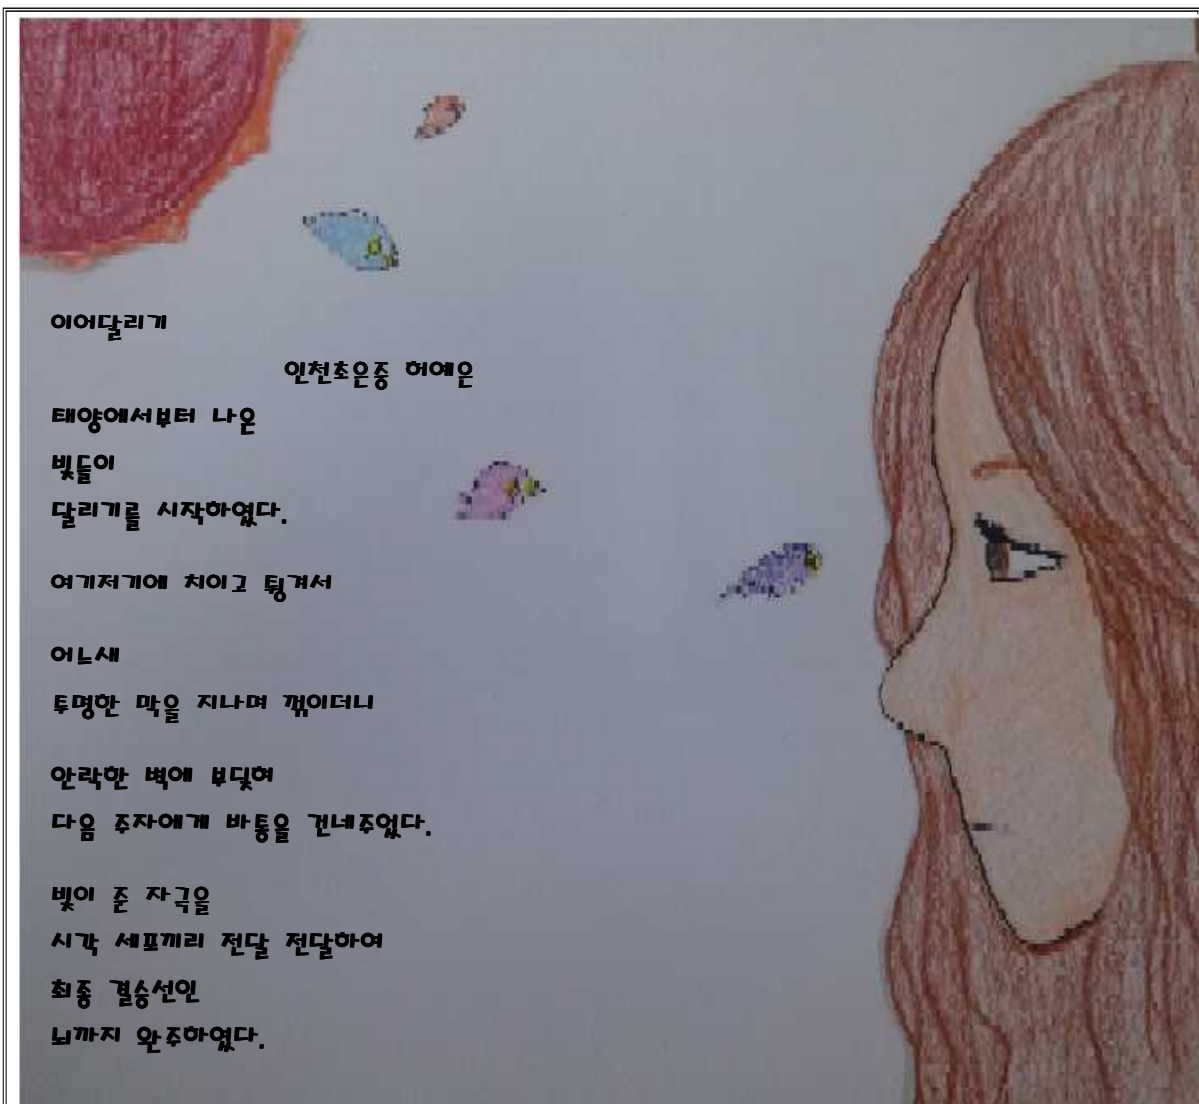 이어달리기
인천초은중 허예은
태양에서부터 나온
빛들이
달리기를 시작하였다.
여기저기에 치이고 튕겨서
어느새
투명한 막을 지나며 꺾이더니
안락한 벽에 부딪혀
다음 주자에게 바통을 건네주었다.
빛이 준 자극을
시각 세포끼리 전달 전달하여
최종 결승선인
뇌까지 완주하였다.